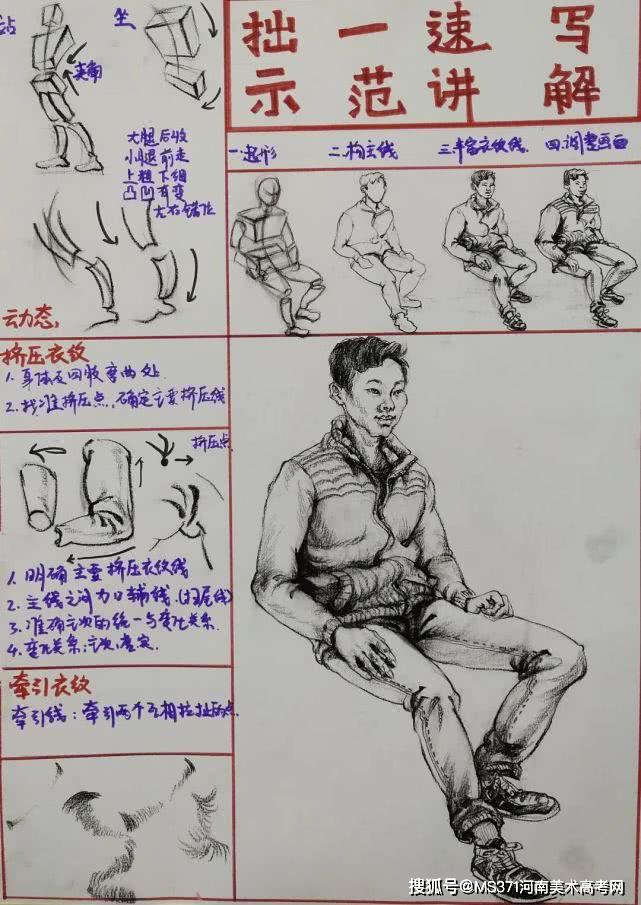 拙一速写
示范讲解
站
坐
夹角
大腿后收
小腿前走
上粗下细
凸凹有变
左右错位
动态,
一.起形 二.构主线 三.丰富衣纹线 四.调整画面
挤压衣纹
1. 身体及四肢弯曲处
2. 找准挤压点,确定主要挤压线
挤压点
1 明确主要挤压衣纹线
2. 主线之间加辅线.(扫尾线)
3. 准确主次的统一与变化关系.
4. 变化关系:主次,虚实.
牵引衣纹
牵引线:牵引两个互相拉扯的点.
搜狐号@MS371河南美术高考网